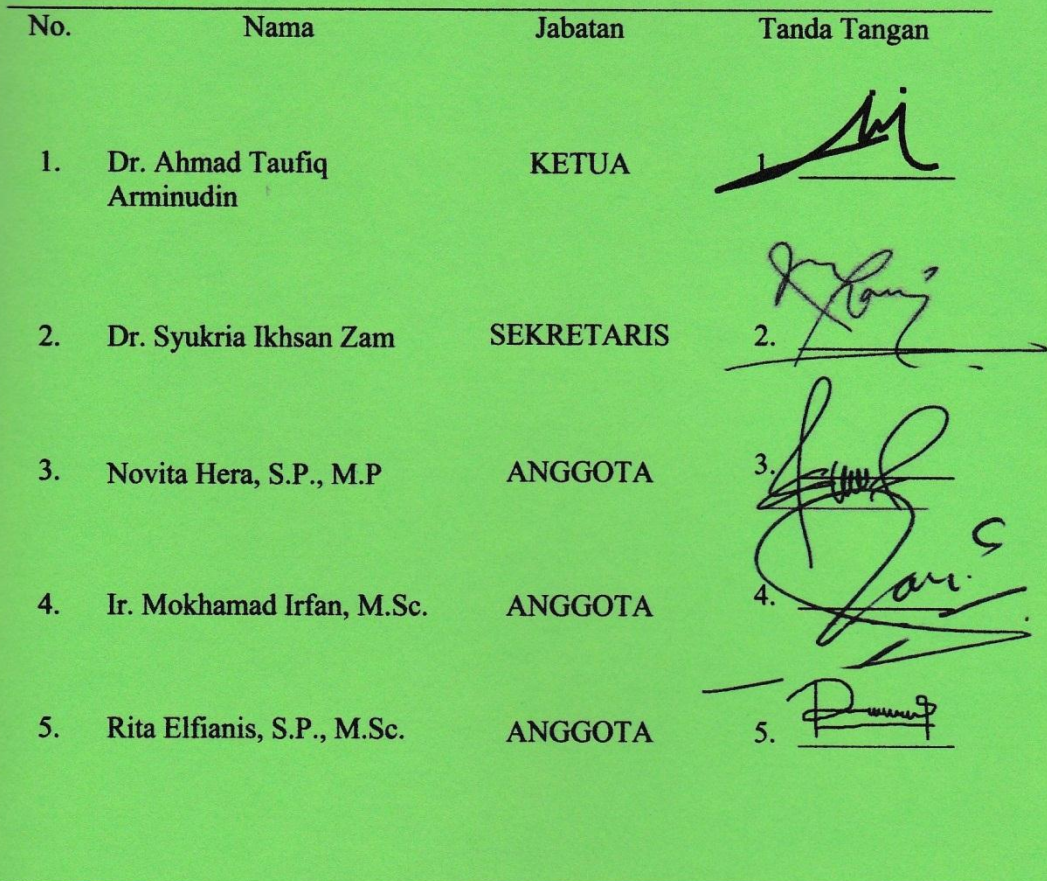 No. Nama Jabatan Tanda Tangan
1. Dr. Ahmad Taufiq Arminudin KETUA 1.
2. Dr. Syukria Ikhsan Zam SEKRETARIS 2.
3. Novita Hera, S.P., M.P ANGGOTA 3.
4. Ir. Mokhamad Irfan, M.Sc. ANGGOTA 4.
5. Rita Elfianis, S.P., M.Sc. ANGGOTA 5.